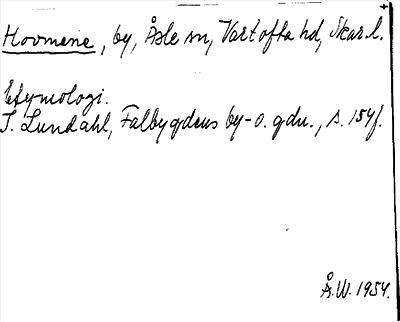 Hovmene, by, Åsle sn, Vartofta hd, Skar.l.
Etymologi.
I. Lundahl, Falbygdens by- o. gdn., s. 154f.
Å.W. 1954.